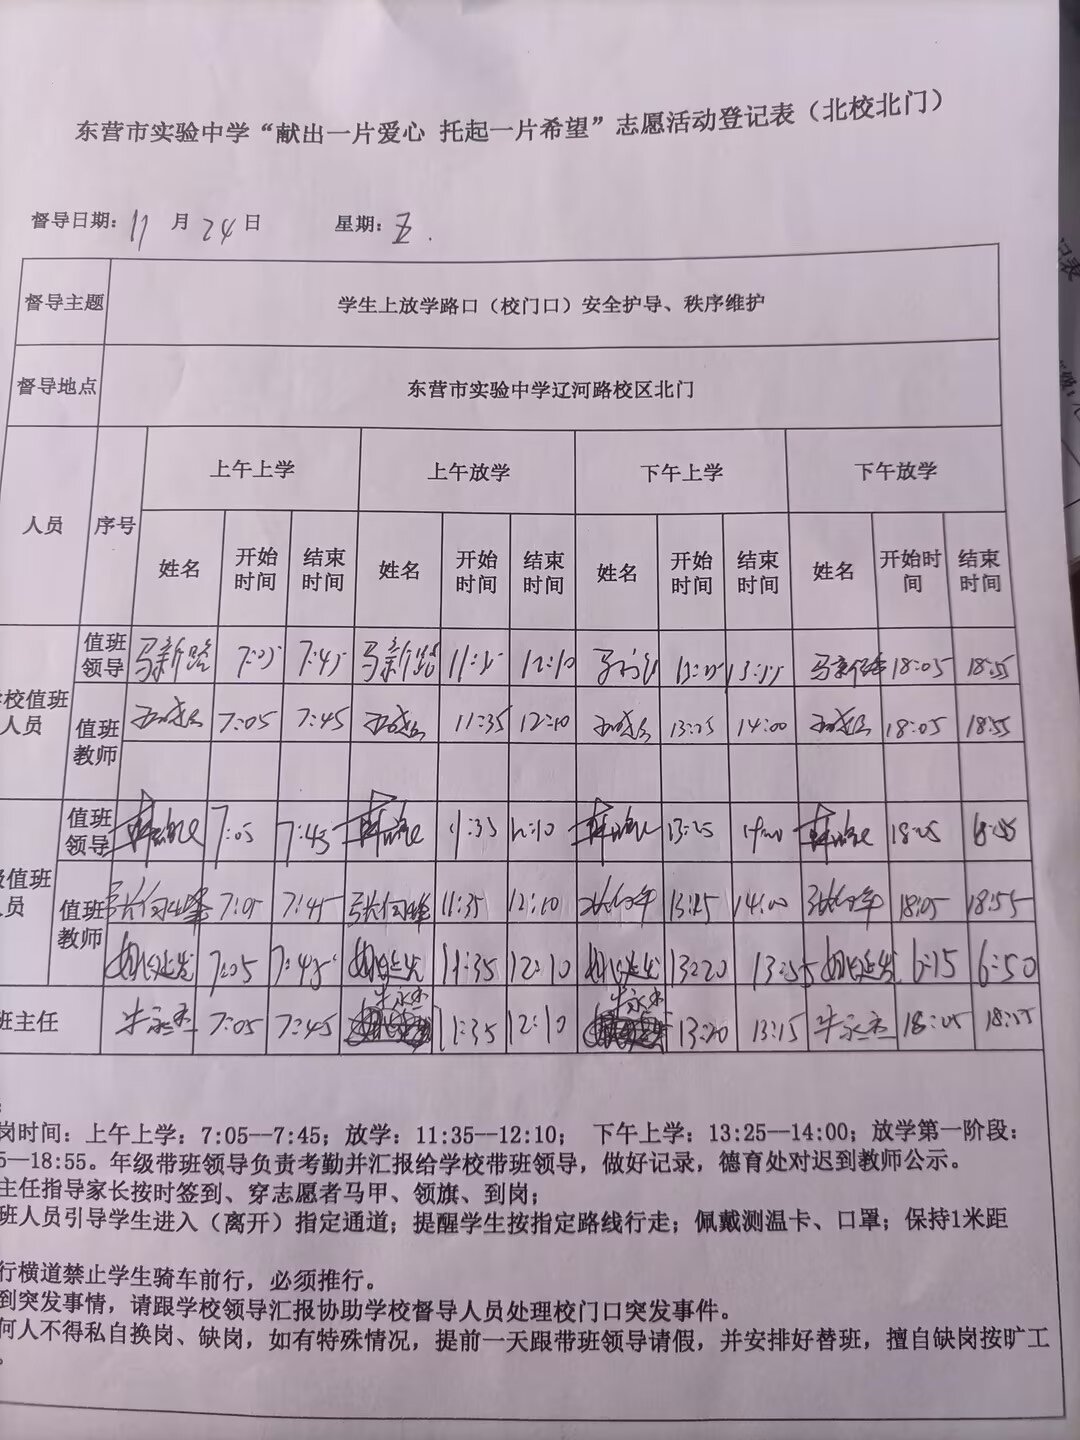 东营市实验中学“献出一片爱心 托起一片希望”志愿活动登记表（北校北门）
督导日期：11月24日 星期：五.
督导主题 学生上放学路口（校门口）安全护导、秩序维护
督导地点 东营市实验中学辽河路校区北门
人员 序号 上午上学 上午放学 下午上学 下午放学
姓名 开始时间 结束时间 姓名 开始时间 结束时间 姓名 开始时间 结束时间 姓名 开始时间 结束时间
校值班人员 值班领导 马新路 7:05 7:45 马新路 11:35 12:10 13:25 马新路 18:05 18:55
值班教师 7:05 7:45 11:35 12:10 13:25 14:00 18:05 18:55
级值班人员 值班领导 7:05 7:45 11:35 12:10 13:25
值班教师 7:05 7:45 11:35 12:10 13:25 14:00 18:05 18:55
7:05 7:45 11:35 12:10 13:20 13:55 6:15 6:50
班主任 牛永杰 7:05 7:45 牛永杰 11:35 12:10 牛永杰 13:20 13:15 牛永杰 18:05 18:55
岗时间：上午上学：7:05--7:45；放学：11:35--12:10； 下午上学：13:25--14:00；放学第一阶段：
5--18:55。年级带班领导负责考勤并汇报给学校带班领导，做好记录，德育处对迟到教师公示。
主任指导家长按时签到、穿志愿者马甲、领旗、到岗；
班人员引导学生进入（离开）指定通道；提醒学生按指定路线行走；佩戴测温卡、口罩；保持1米距
行横道禁止学生骑车前行，必须推行。
到突发事情，请跟学校领导汇报协助学校督导人员处理校门口突发事件。
何人不得私自换岗、缺岗，如有特殊情况，提前一天跟带班领导请假，并安排好替班，擅自缺岗按旷工